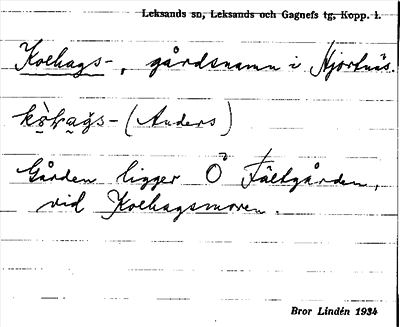 Leksands sn, Leksands och Gagnefs tg, Kopp. l.
Kolhags-, gårdsnamn i Hjortnäs.
(Anders)
Gården ligger Ö Fältgården,
vid Kolhagsmoren.
Bror Lindén 1934